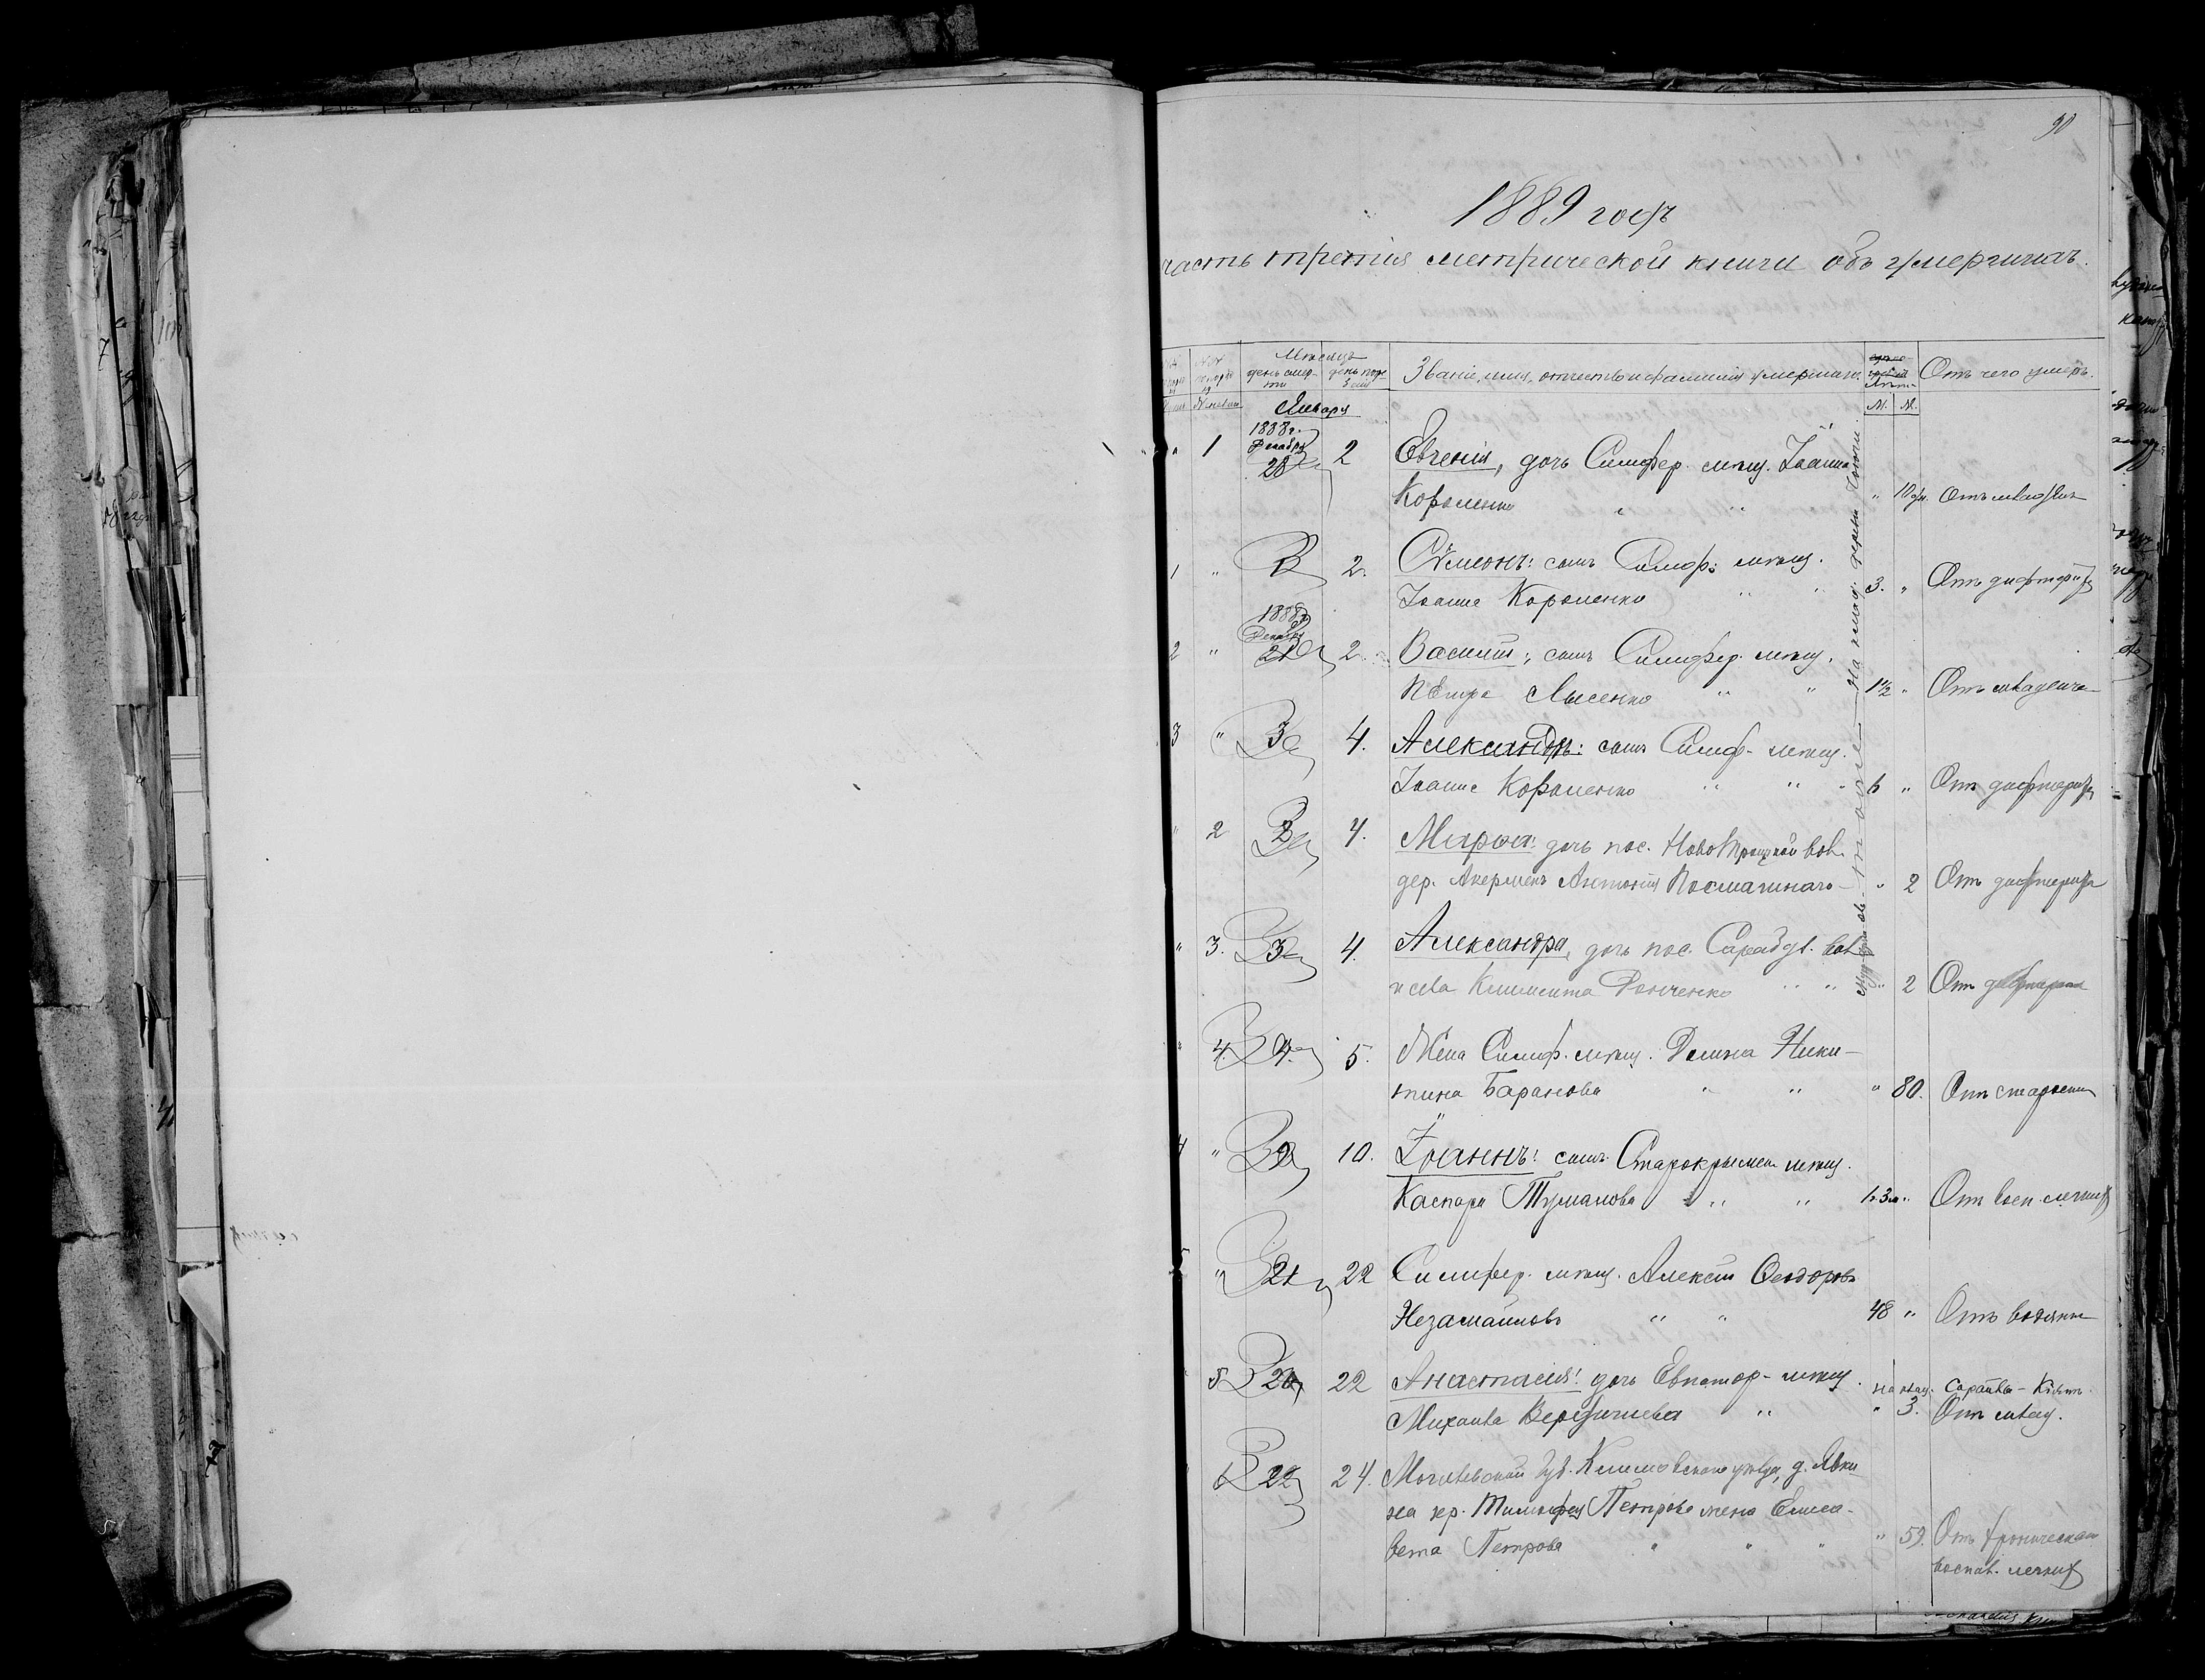 90
1889 годъ
часть третія метрической книги объ умершихъ.
Мѣсяцъ
день смерти
Званіе, имя, отчество и фамилія умершихъ.
Лѣта
Отъ чего умеръ.
Января
М. Ж.
" 1 1888 г. Декабря 28 2 Евгенія, дочь Симфер. мѣщ. Іоанна
Короленко " " " 10 дн. Отъ
1 " 2 2. Сѵмеонъ: сынъ Симф: мѣщ.
Іоанна Короленко " " 3. " Отъ дифтерита
2 " 1888 Декабр 21 2. Василій: сынъ Симфер. мѣщ.
Петра Лысенко " " 1½ " Отъ младенч
3 " 3 4. Александръ: сынъ Симф- мѣщ.
Іоанна Короленко " " " 6 " Отъ дифтерита
" 2 3 4. Марѳа: дочь пос. НовоТроицкой вол.
дер. Акерменъ Антонія " 2 Отъ дифтерита
" 3. 3 4. Александра, дочь пос. Сарабуз. вол.
и села Климента " " " 2 Отъ дифтерита
" 4. 4. 5. Жена Симф. мѣщ. Ники-
тина Баранова " " " 80. Отъ старости
4 " 9 10. Іоаннъ: сынъ Старокрымск. мѣщ.
Каспара Туманова " " 1 г. 3 м. " Отъ восп. легкихъ
5 " 21 22 Симфер. мѣщ. Алексѣй Ѳеодоровъ
Незамайновъ " " 48 " Отъ водянки
5 20 22 Анастасія: дочь Евпатор- мѣщ.
на клад. Сарайлы-Кіятъ.
Михаила " " 3. Отъ млад.
22 24. Могилевской губ. Климовскаго уѣзда, д.
кр. Тимофея Петрова жена Елиса-
вета Петрова " " " " 59. Отъ хроническаго
воспал. легкихъ